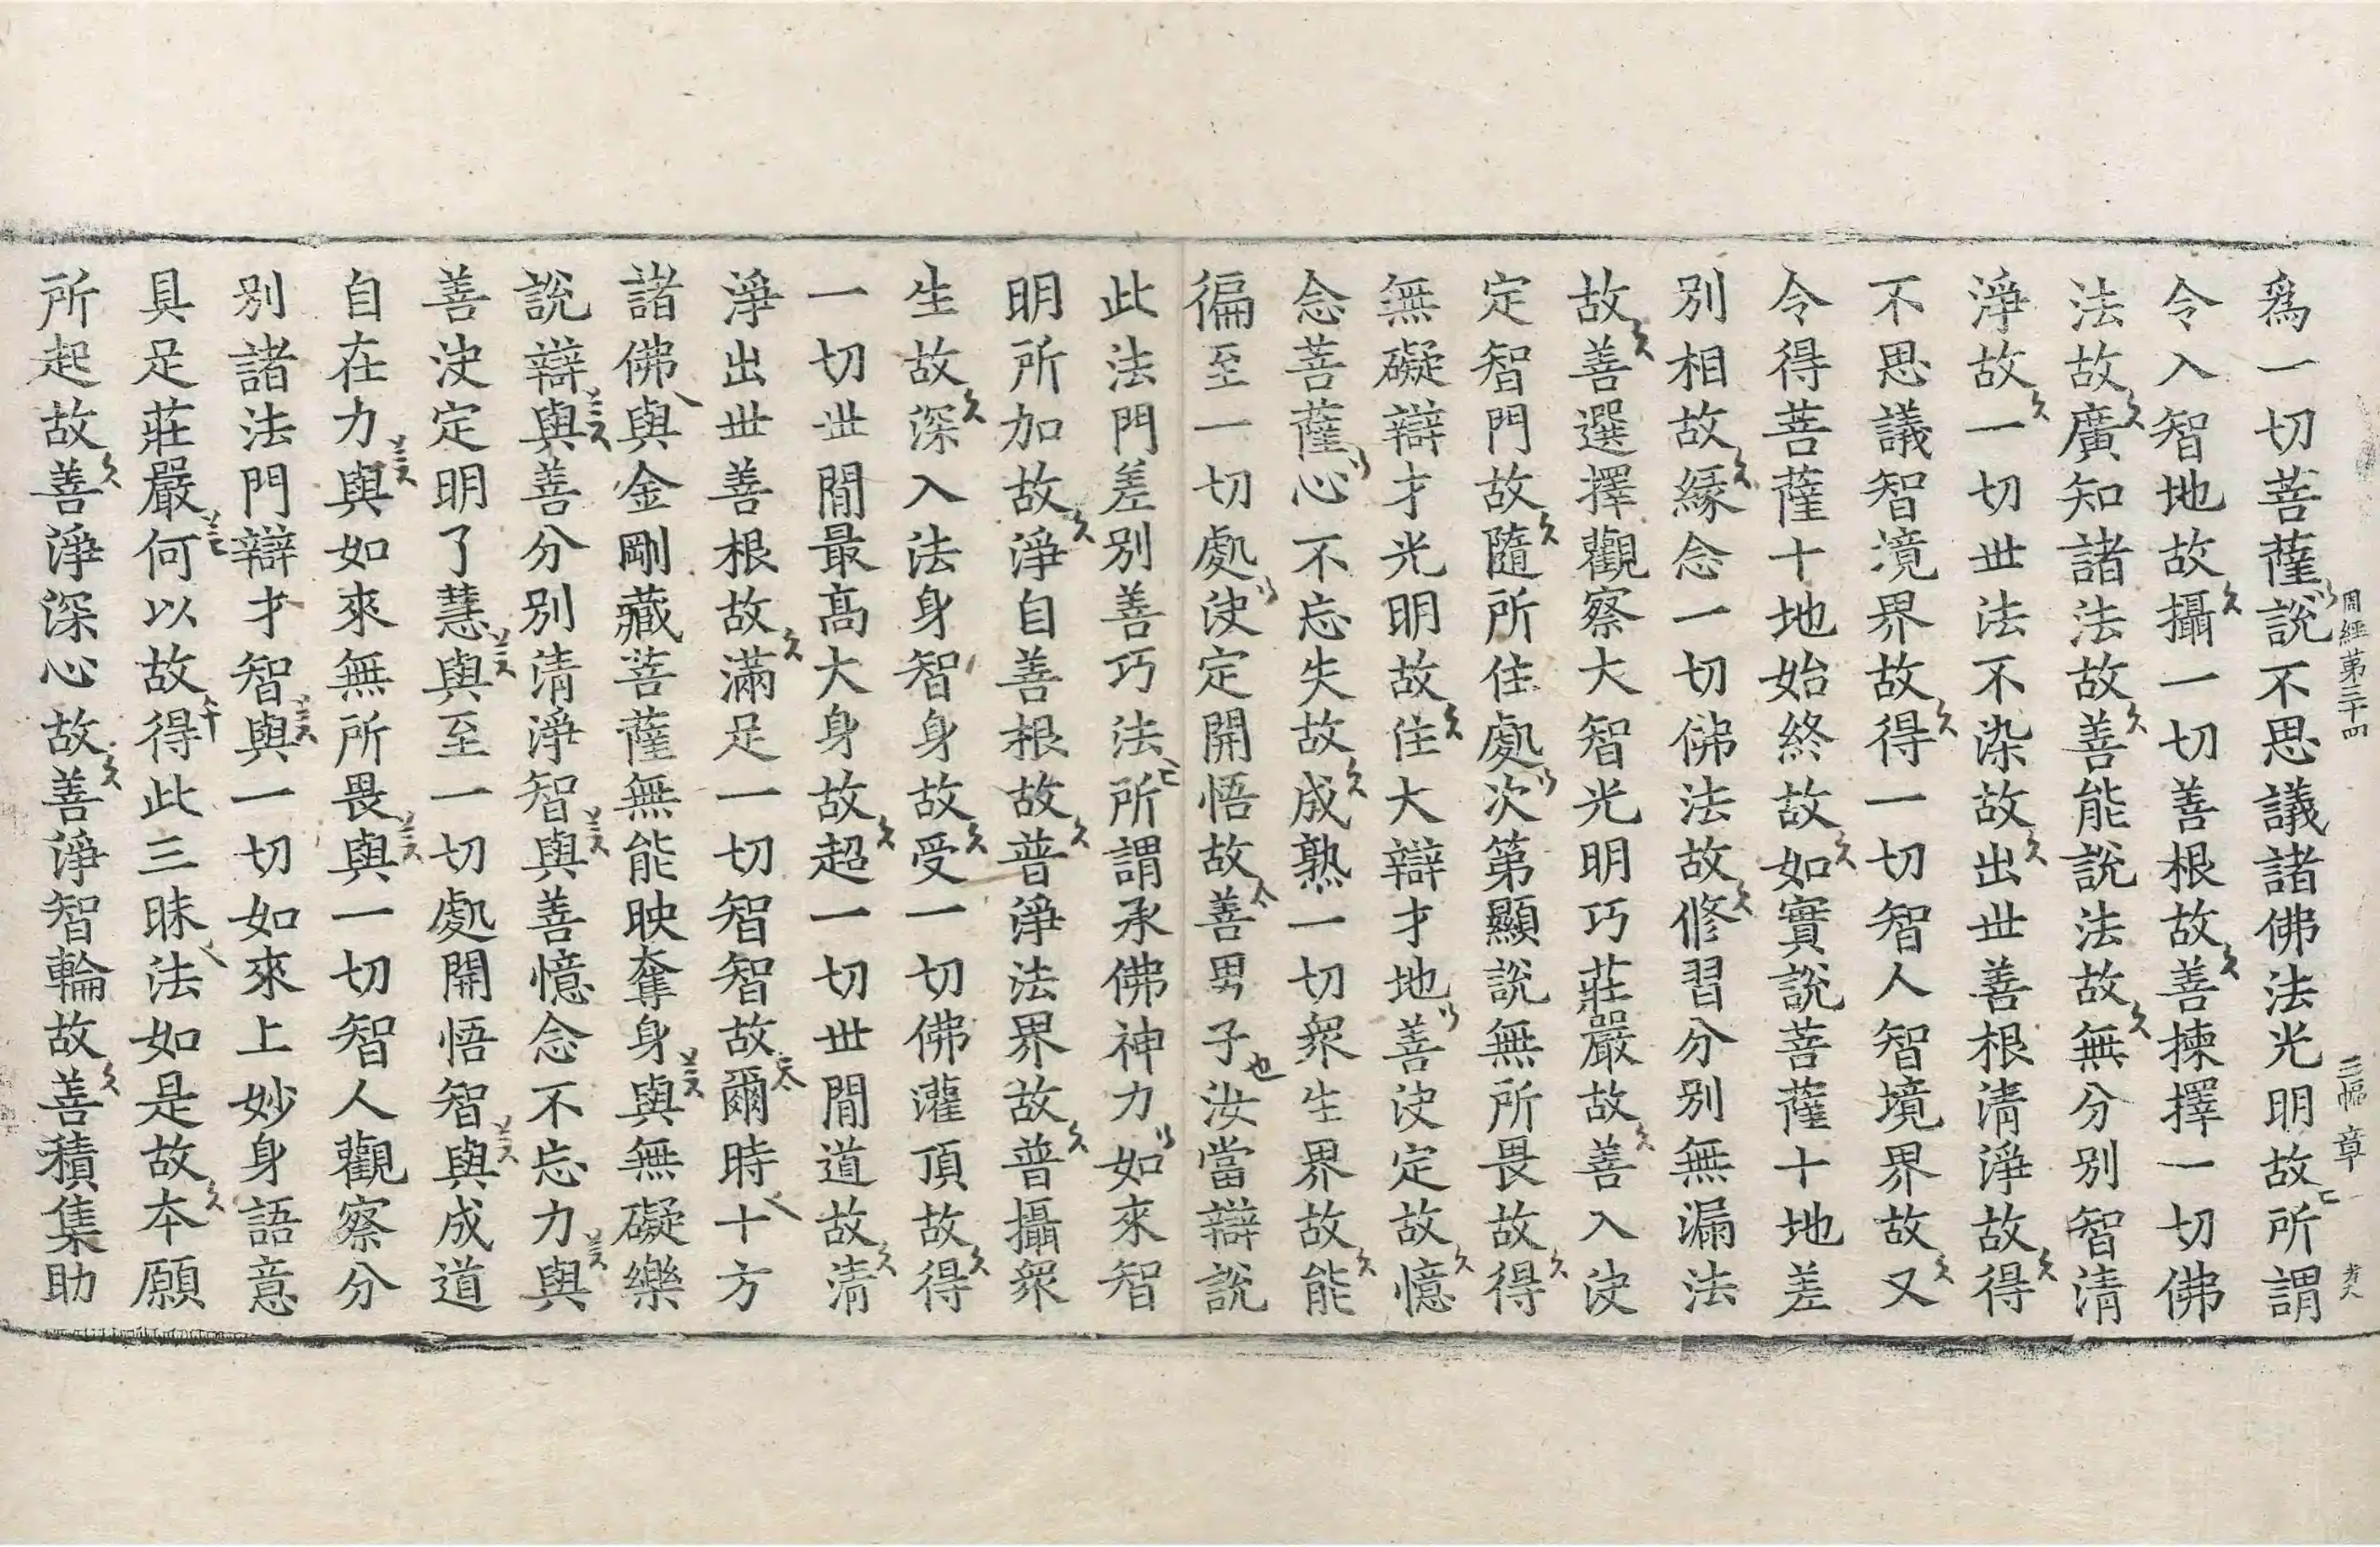 周經第三十四 三幅 章
爲一切菩薩說不思議諸佛法光明故所謂
令入智地故攝一切善根故善揀擇一切佛
法故廣知諸法故善能說法故無分別智清
淨故一切世法不染故出世善根清淨故得
不思議智境界故得一切智人智境界故又
令得菩薩十地始終故如實說菩薩十地差
別相故緣念一切佛法故修習分別無漏法
故善選擇觀察大智光明巧莊嚴故善入決
定智門故隨所住處次第顯說無所畏故得
無礙辯才光明故住大辯才地善決定故憶
念菩薩心不忘失故成熟一切衆生界故能
徧至一切處決定開悟故善男子汝當辯說
此法門差別善巧法所謂承佛神力如來智
明所加故淨自善根故普淨法界故普攝衆
生故深入法身智身故受一切佛灌頂故得
一切世閒最高大身故超一切世閒道故清
淨出世善根故滿足一切智智故爾時十方
諸佛與金剛藏菩薩無能映奪身與無礙樂
說辯與善分別清淨智與善憶念不忘力與
善決定明了慧與至一切處開悟智與成道
自在力與如來無所畏與一切智人觀察分
別諸法門辯才智與一切如來上妙身語意
具足莊嚴何以故得此三昧法如是故本願
所起故善淨深心故善淨智輪故善積集助